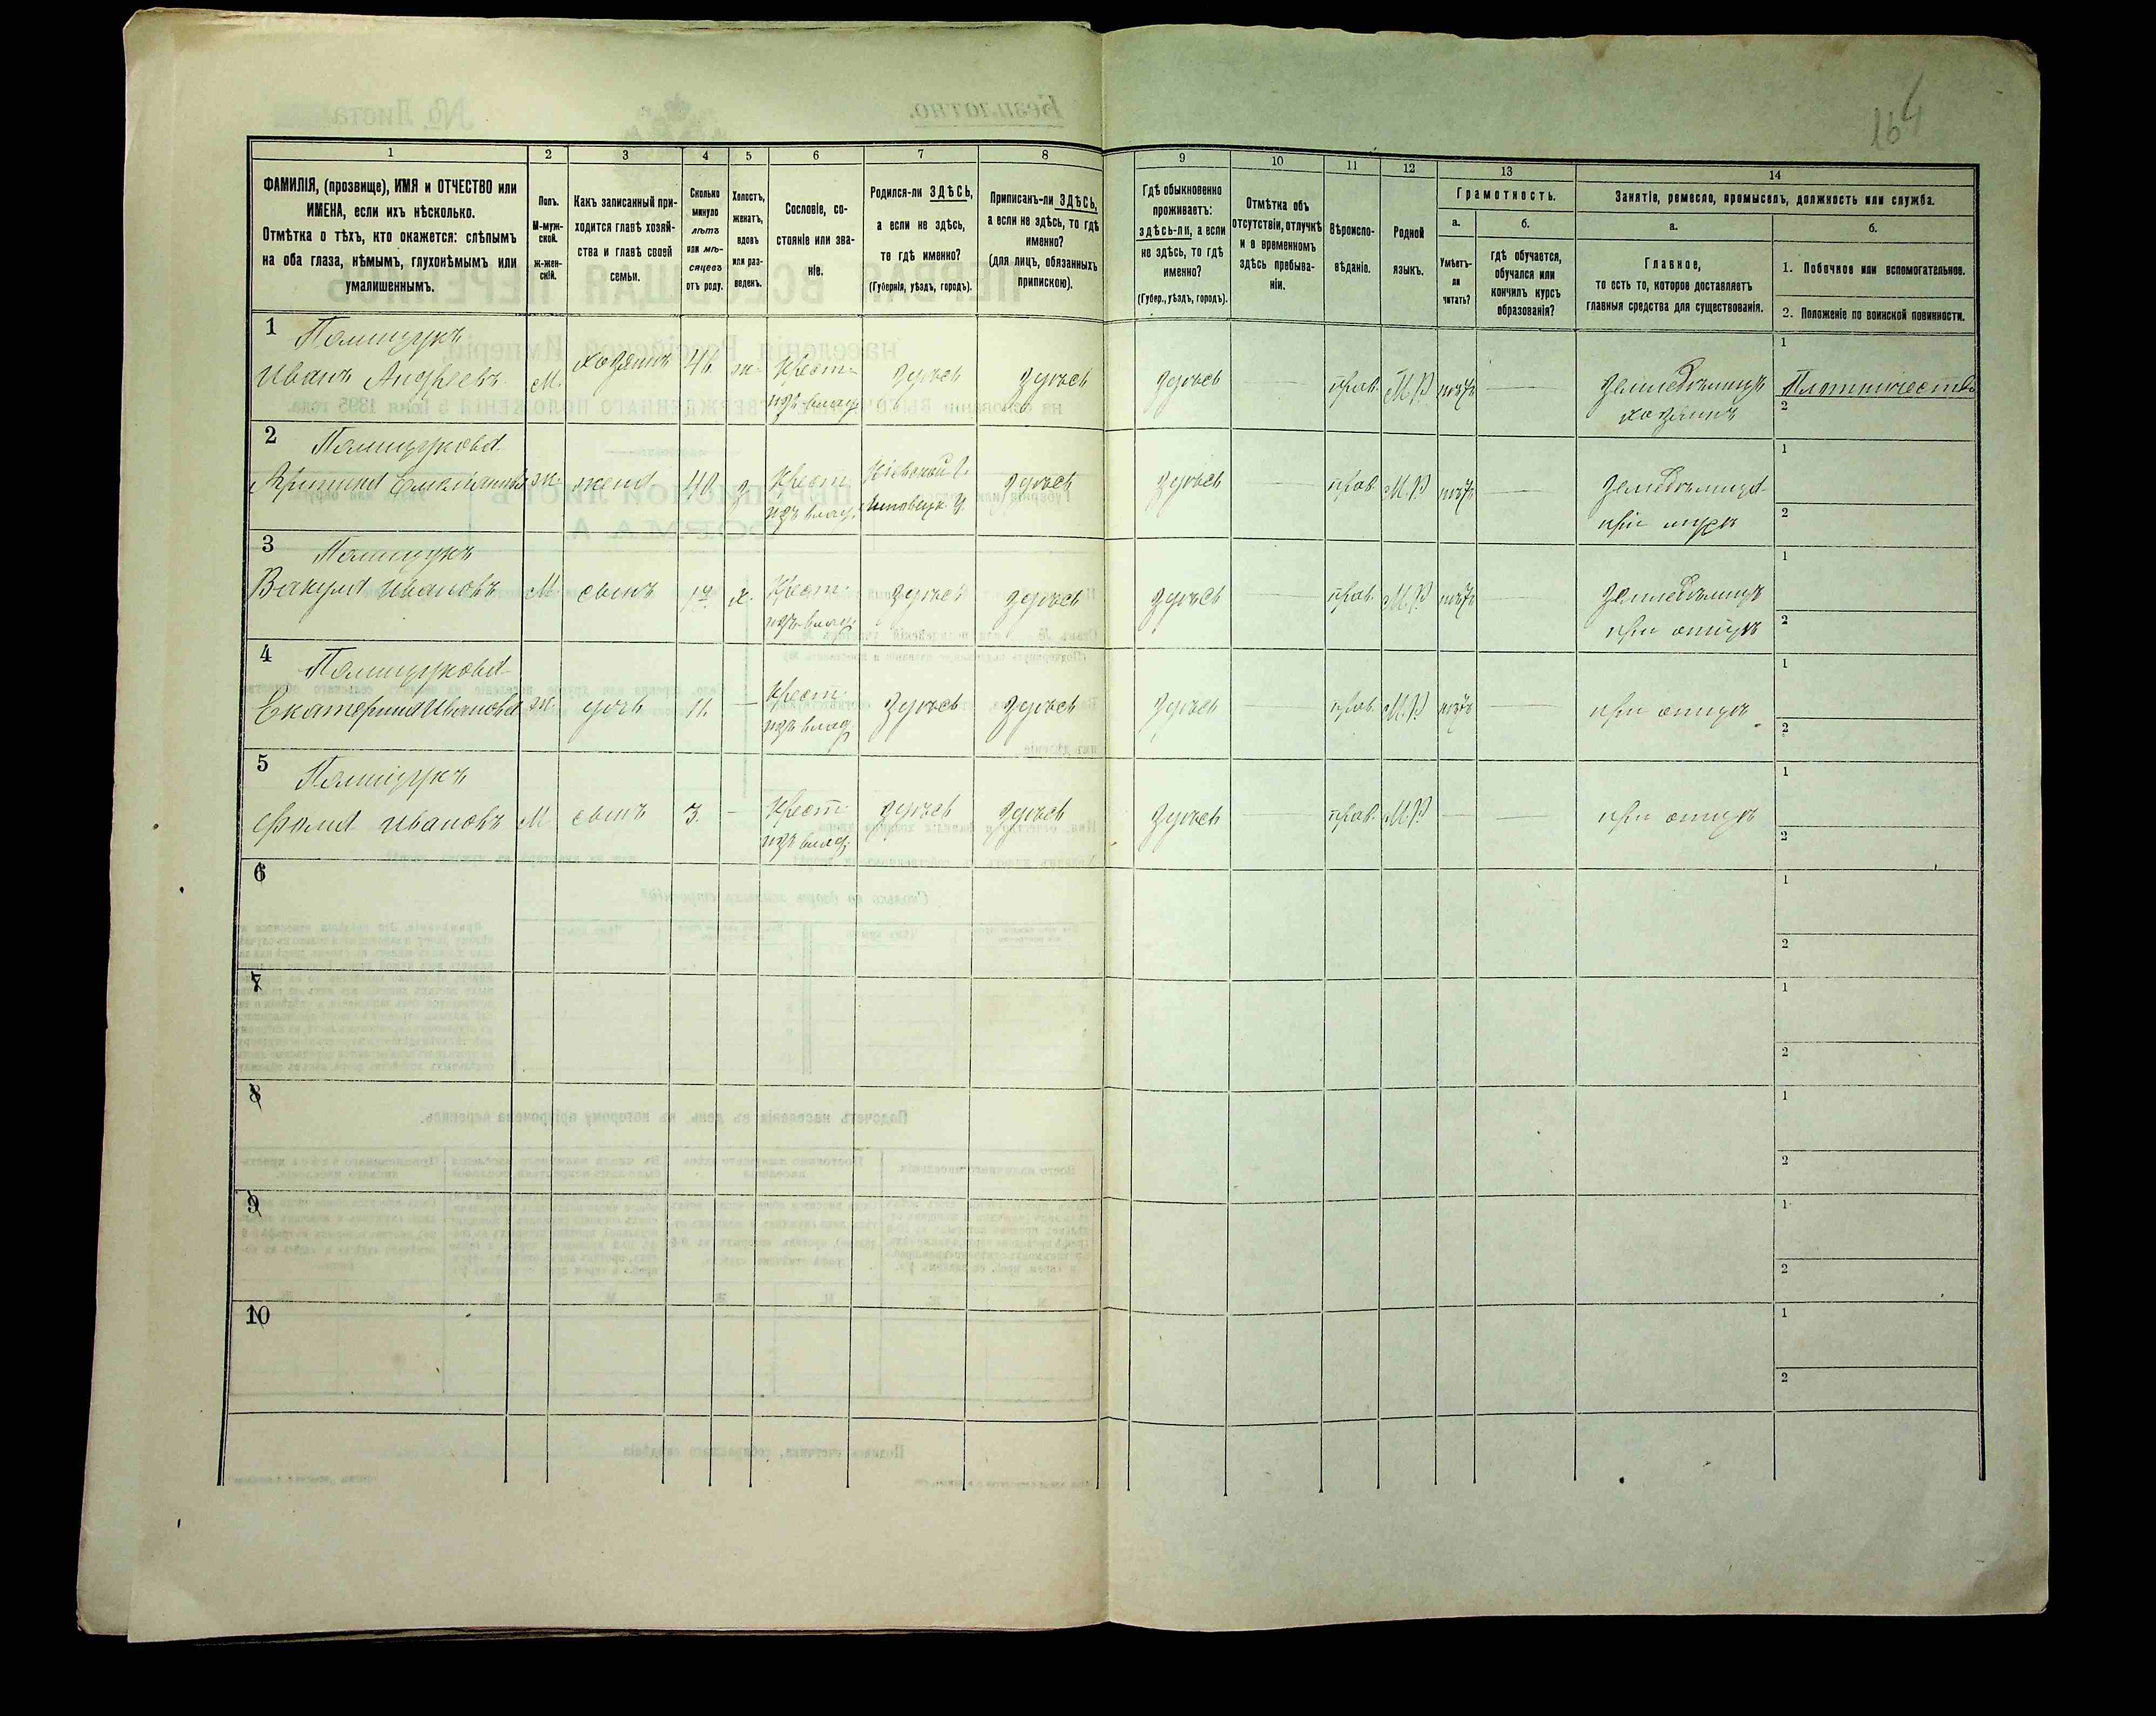 164
1 2 3 4 5 6 7 8 9 10 11 12 13 14
ФАМИЛІЯ, (прозвище), ИМЯ и ОТЧЕСТВО или
ИМЕНА, если ихъ нѣсколько.
Отмѣтка о тѣхъ, кто окажется: слѣпымъ
на оба глаза, нѣмымъ, глухонѣмымъ или
умалишеннымъ.
Полъ.
М-муж-
ской.
ж-жен-
скій.
Какъ записанный при-
ходится главѣ хозяй-
ства и главѣ своей
семьи.
Сколько
минуло
лѣтъ
или мѣ-
сяцевъ
отъ роду.
Холостъ,
женатъ,
вдовъ
или раз-
веденъ.
Сословіе, со-
стояніе или зва-
ніе.
Родился-ли ЗДѢСЬ,
а если не здѣсь,
то гдѣ именно?
(Губернія, уѣздъ, городъ).
Приписанъ-ли ЗДѢСЬ,
а если не здѣсь, то гдѣ
именно?
(для лицъ, обязанныхъ
припискою).
Гдѣ обыкновенно
проживаетъ:
здѣсь-ли, а если
не здѣсь, то гдѣ
именно?
(Губер., уѣздъ, городъ).
Отмѣтка объ
отсутствіи, отлучкѣ
и о временномъ
здѣсь пребыва-
ніи.
Вѣроиспо-
вѣданіе.
Родной
языкъ.
Грамотность.
а.
Умѣетъ-
ли
читать?
б.
гдѣ обучается,
обучался или
кончилъ курсъ
образованія?
Занятіе, ремесло, промыселъ, должность или служба.
а.
Главное,
то есть то, которое доставляетъ
главныя средства для существованія.
б.
1. Побочное или вспомогательное.
2. Положеніе по воинской повинности.
1 Полищукъ
Иванъ Андреевъ М. хозяинъ 46 ж. Крест. здѣсь здѣсь здѣсь — прав. М.Р. нѣтъ — Земледѣлецъ 1 Плотничество
изъ влад. хозяинъ 2
2 Полищукова
Арина Емельянова ж. жена 40 з. Крест. Кіевской г. здѣсь здѣсь — прав. М.Р. нѣтъ — Земледѣлица 1
изъ влад. Липовецк. у. при мужѣ 2
3 Полищукъ
Вакула Ивановъ М. сынъ х. Крест. здѣсь здѣсь здѣсь — прав. М.Р. нѣтъ Земледѣлецъ 1
изъ влад. при отцѣ 2
4 Полищукова
Екатерина Иванова ж. дочь 11. — Крест. здѣсь здѣсь здѣсь — прав. М.Р. нѣтъ — при отцѣ 1
изъ влад. 2
5 Полищукъ
Фома Ивановъ М. сынъ 3. — Крест. здѣсь здѣсь здѣсь — прав. М.Р. — — при отцѣ 1
изъ влад. 2
6 1
2
7 1
2
8 1
2
9 1
2
10 1
2